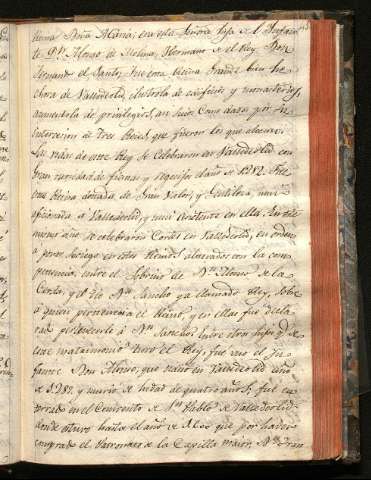 Doña Maria, era esta Señora hija de el Infan
te Dn. Alonso de Molina, Hermano de el Rey Don
Fernando el Santo, fue esta Reina Grande bien he
chora de Valladolid, ilustrola de edificios y monasterios,
aumentola de privilegios, en
intercesion de tres Reies que fueron los que alcanzo.
Las vodas de este Rey se celebraron en Valladolid con
gran variedad de fiestas y regocijos el año de 1282. fue
esta Reina dotada de Gran Valor, y Gentileza, muy
aficionada a Valladolid, y muy asistente en ella, En este
mismo año se celebraron Cortes en Valladolid, en orden
a poner sosiego en estos Reinos, alterados con la com
petencia, entre el Sobrino de Dn. Alonso de la
Cerda, y el tio Dn. Sancho ya llamado Rey, sobre
a quien pertenecia el Reino, y en ellas fue decla
rado pertenecerle a Dn. Sancho: Entre otros hijos q.e de
este matrimonio tuvo el Rey, fue uno el In
fante Don Alonso, que nacio en Valladolid año
de 1282. y murio de hedad de quatro años, fue en
terrado en el Convento de Sn. Pablo de Valladolid
donde estuvo hasta el año de que por haver
comprado el Patronato de la Capilla maior, Dn. Fran